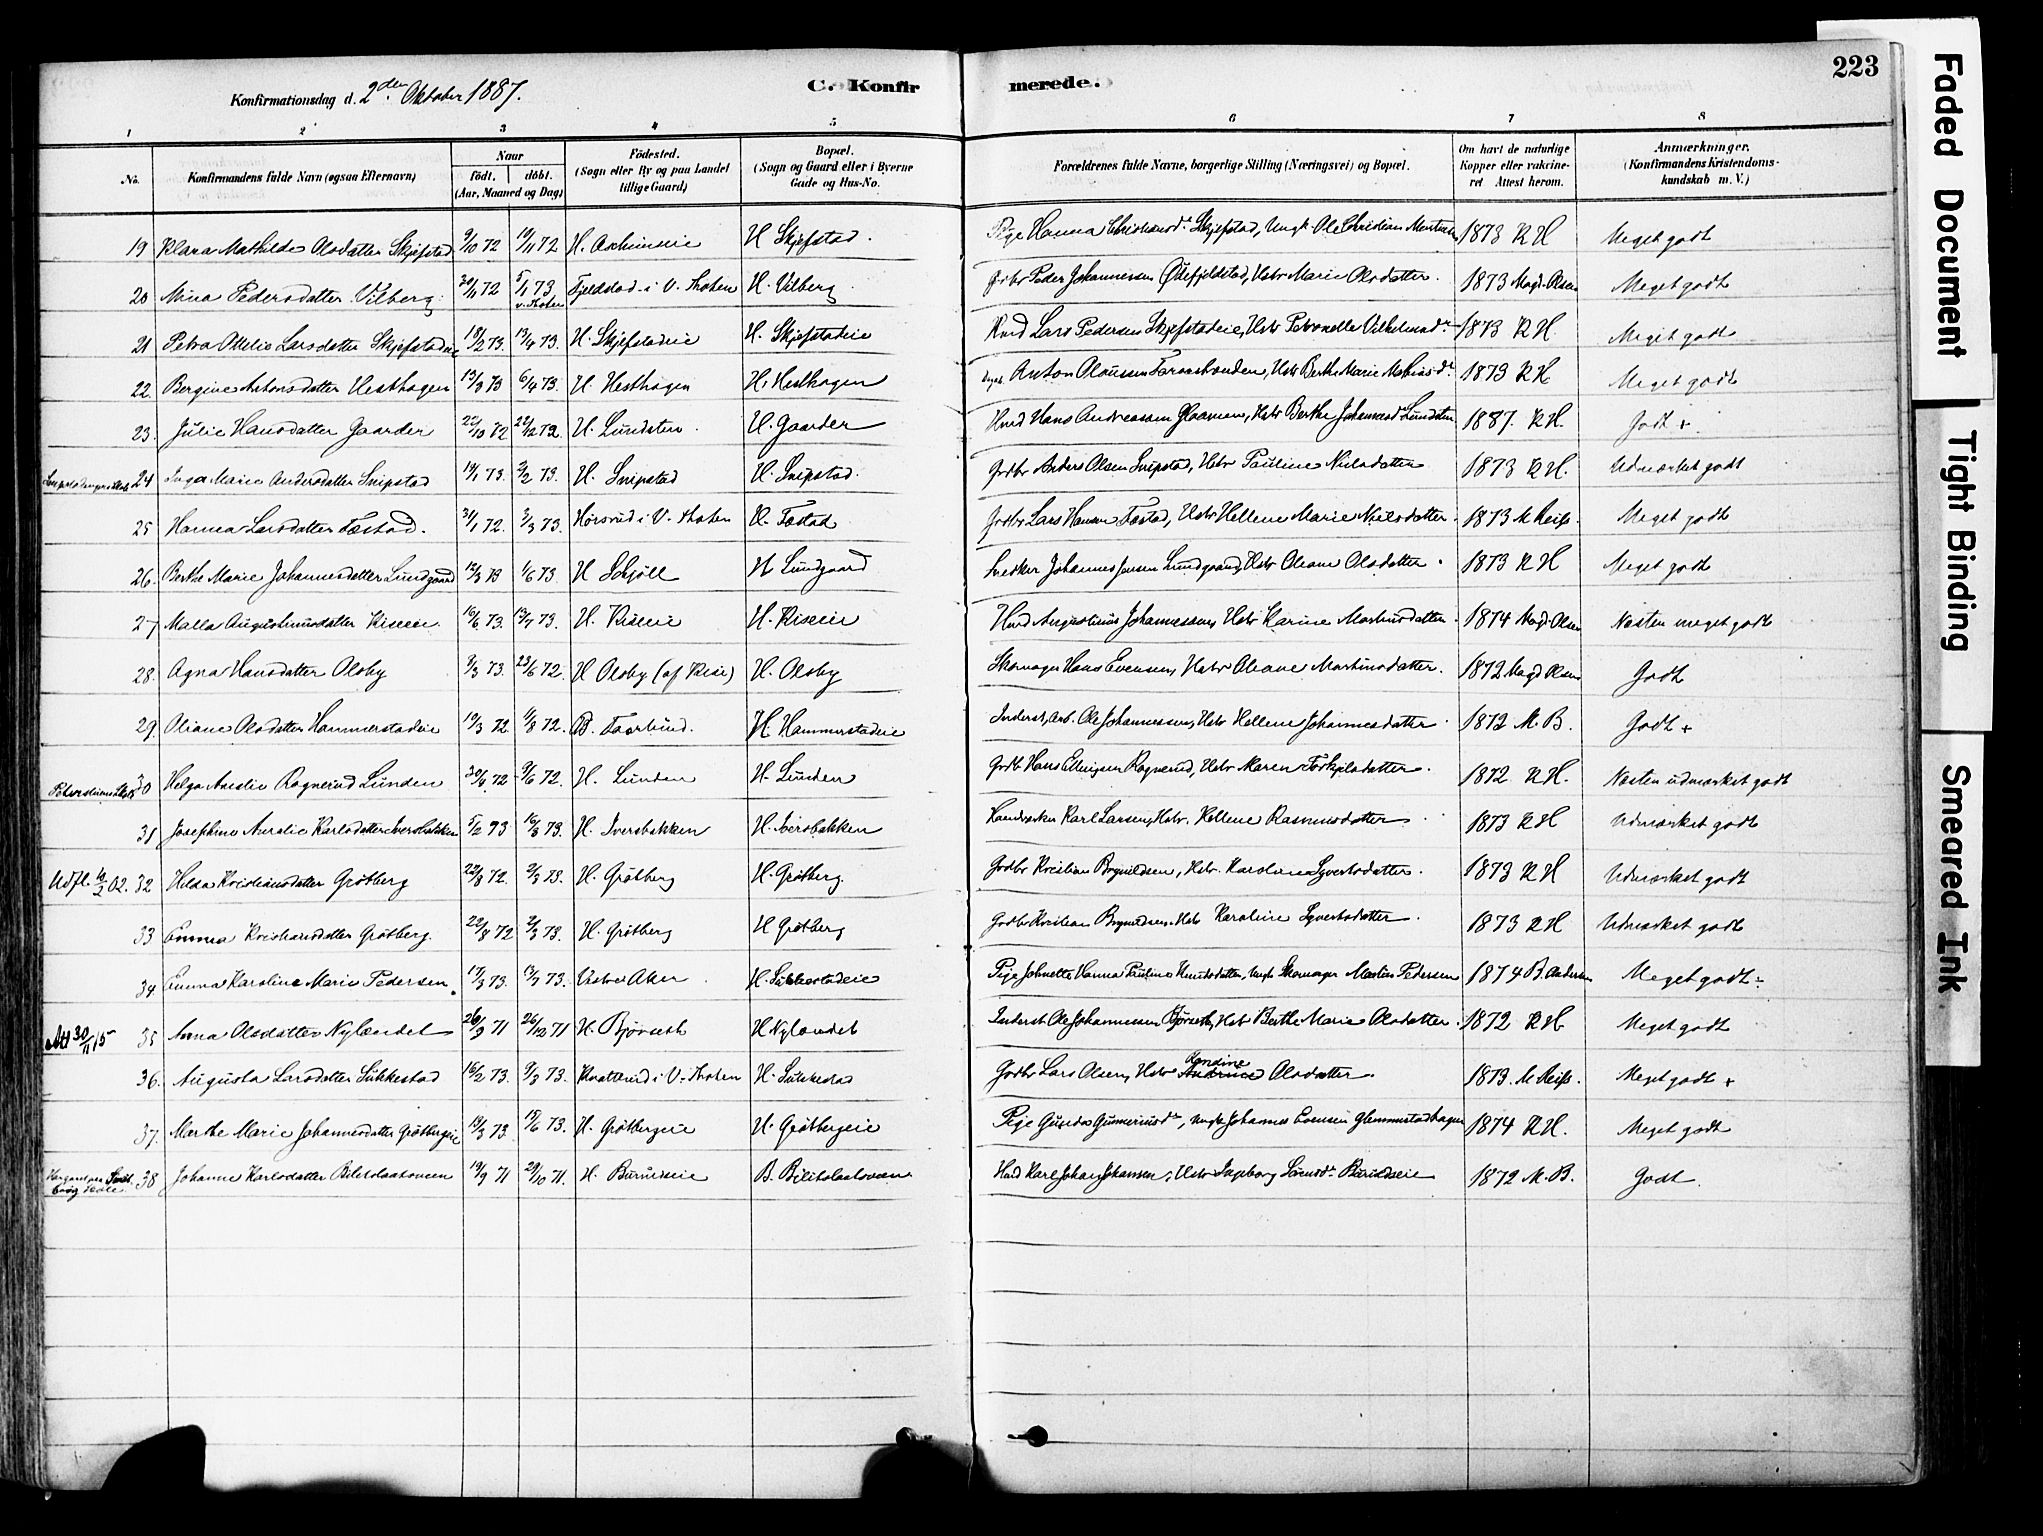 223
Konfirmationsdag d. 2den Oktober 1887.
C. Konfirmerede.
1 2 3 4 5 6 7 8
No. Konfirmandens fulde Navn (ogsaa Efternavn) Naar født. døbt. (Aar, Maaned og Dag) Fødested. (Sogn eller By og paa Landet tillige Gaard) Bopæl. (Sogn og Gaard eller i Byerne Gade og Hus-No. Forældrenes fulde Navne, borgerlige Stilling (Næringsvei) og Bopæl. Om havt de naturlige Kopper eller vaccineret Attest herom. Anmærkninger. (Konfirmandens Kristendomskundskab m. V.)
19 Klara Mathilde Olsdatter Skjefstad 9/10 72 72 H. H Skjefstad. Pige Hanna Skjefstad, Ungk. Ole Christian 1873 R H Meget godt
20 Mina Pedersdatter Vilberg 72 5/1 73 V. Thoten Fjeldstad i V. Thoten H. Vilberg Gdbr Peder Johannessen Ødefjeldstad, Hstr Marie Olsdatter. 1873 Magd. Olsen Meget godt
21 Petra Otelie Larsdatter Skjefstadeie 18/2 73. 13/4 73. H. Skjefstadeie H. Skjefstadeie Hmd Lars Pedersen Skjefstadeie, Hstr Petronelle 1873 R H. Meget godt
22. Bergine Antonsdatter Hesthagen 13/3 73 6/4 73. H. Hesthagen H. Hesthagen Anton Olaussen Hstr Berthe Marie 1873 R H. Meget godt
23. Julie Hansdatter Gaarder 22/10 72 22/12 72. H. Lundsten H. Gaarder Hmd Hans Andreassen Hstr Berthe Johannesd. Lundsten 1887. R H. Godt +
24 Inga Marie Andersdatter Snipstad 19/1 73. 2/2 73. H. Snipstad H. Snipstad. Gdbr Anders Olsen Snipstad, Hstr Pauline Nielsdatter 1873 R H. Udmærket godt
25 Hanna Larsdatter Fæstad. 31/1 72. 2/3 73. Hörsrud i V. Thoten H. Fæstad Gdbr Lars Hansen Fæstad, Hstr Hellene Marie Nielsdatter. 1873 M. Reiss. Meget godt
26. Berthe Marie Johannesdatter Lundgaard 12/3 73 1/6 73. H Schjöll H Lundgaard Snedker Johannes Jensen Lundgaard, Hstr Oleane Olsdatter. 1873 R H Meget godt
27 Malla Augustinusdatter Riseeie 16/6 73. 13/7 73. H. Riseeie H. Riseeie Hmd Augustinus Johannessen, Hstr Karine Martinusdatter. 1874 Magd. Olsen Næsten meget godt
28. Agna Hansdatter Olsby 9/3 73. 23/6 72. H Olsby (af Rise) H. Olsby Skomager Hans Evensen, Hstr Oleane Martinusdatter. 1872 Magd Olsen Godt
29. Oleane Olsdatter Hammerstadeie 19/3 72 4/8 72. B. H. Hammerstadeie Inderst, Arb. Ole Johannessen, Hstr Hellene Johannesdatter. 1872 M. B. Godt +
30 Helga Amalie Rognerud Lunden 30/4 72 9/6 72. H. Lunden H. Lunden Gdbr Hans Ellingsen Rognerud, Hstr Maren Torkjelsdatter. 1872 R H. Næsten udmærket godt
31 Josephine Amalie Karlsdatter Iversbakken 5/2 73 16/3 73. H. Iversbakken H. Iversbakken Karl Larsen, Hstr. Hellene Rasmusdatter 1873 R H Udmærket godt
Udfl. 02. 32 Hilda Kristiansdatter Grötberg 22/8 72. 2/3 73. H. Grötberg H. Grötberg. Gdbr Kristian Brynildsen, Hstr. Karoline Syvertsdatter. 1873 R H Udmærket godt
33 Emma Kristiansdatter Grötberg. 22/8 72 2/3 73. H. Grötberg H Grötberg Gdbr Kristian Brynildsen, Hstr Karoline Syvertsdatter. 1873 R H Udmærket godt
34. Emma Karoline Marie Pedersen. 17/3 73. 13/7 73. Vestre Aker H. Sukkestadeie Pige Johnette Hanna Pauline Knudsdatter, ungk Skomager Martin Pedersen 1874 B. Andersen Meget godt ÷
Att 30/11 15 35 Anna Olsdatter Nylændet 26/9 71 26/12 71 H. Bjørseth H Nylændet Inderst Ole Johannessen Bjørseth, Hstr Berthe Marie Olsdatter. 1872 R H. Meget godt
36. Augusta Larsdatter Sukkestad 16/2 73. 9/3 73. Kvatterud i V. Thoten H. Sukkestad Gdbr Lars Olsen, Hstr Olsdatter. 1873. M. Reiss. Meget godt +
37. Marthe Marie Johannesdatter Grötbergeie 19/3 73 73. H. Grötbergeie H. Grötbergeie Pige ungk Johannes Evensen Glemmestadhagen 1874 R H. Meget godt
38 Johanne Karlsdatter 19/9 71 29/10 71. H. B. Hmd Karl Johan Johansen, Hstr Ingeborg 1872 M. B. Godt.
Faded Document
Tight Binding
Smeared Ink